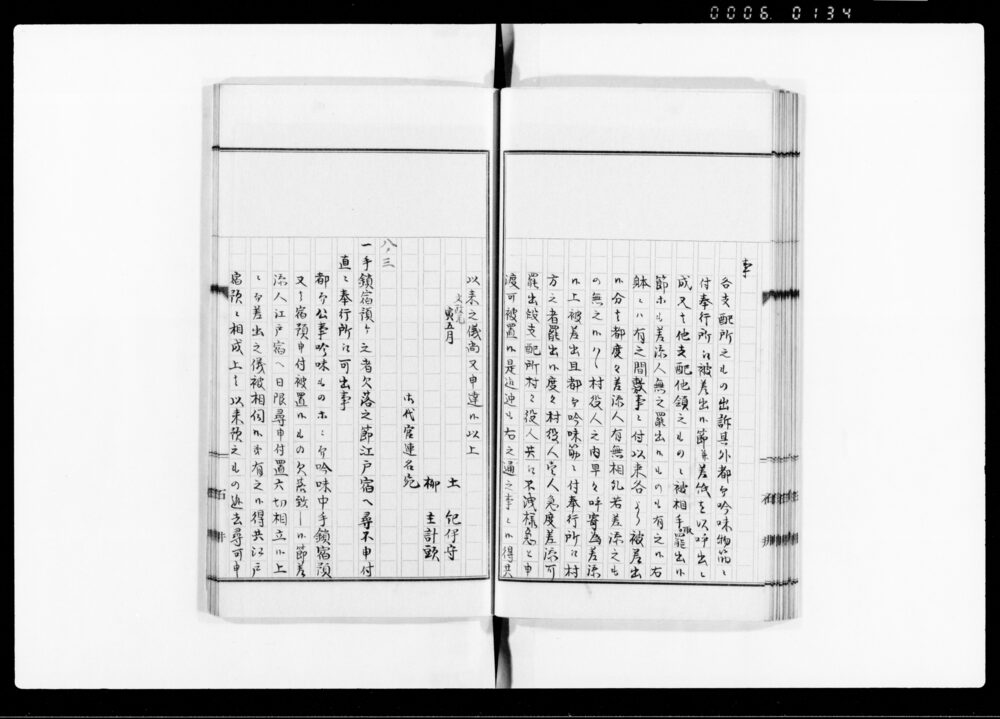 0006. 0134
事
各支配所之もの出訴其外都而吟味物筋ニ
付奉行所江被差出候節者差紙を以呼出ニ
成又者他支配他領之ものニ被相手取罷出候
節ホも差添人無之罷出候ものも有之候右
躰ニ八有之間敷事ニ付以来各より被差出
候分者都度々差添人有無相糺若差添之も
の無之候ハヽ村役人之内早々呼寄為差添
候上被差出且都而吟味筋ニ付奉行所江村
方之者罷出候度々村役人宅人急度差添可
罷出段支配所村々役人共江不洩様急と申
渡可被置候是迄迚も右之通之事ニ候得共
以来之儀尚又申達候以上
文政元
寅五月
土 紀伊守
柳 主計頭
御代官連名宛
八ノ三
一手鎖宿預ケ之者欠落之節江戸宿へ尋不申付
直ニ奉行所江可出事
都而公事吟味ものホニ而吟味中手鎖宿預
又者宿預申付被置候もの欠落致し候節差
添人江戸宿へ日限尋申付置六切相立候上
ニ而差出之儀被相伺候分有之候得共江戸
宿預ニ相成上者以来預之もの逃去尋可申